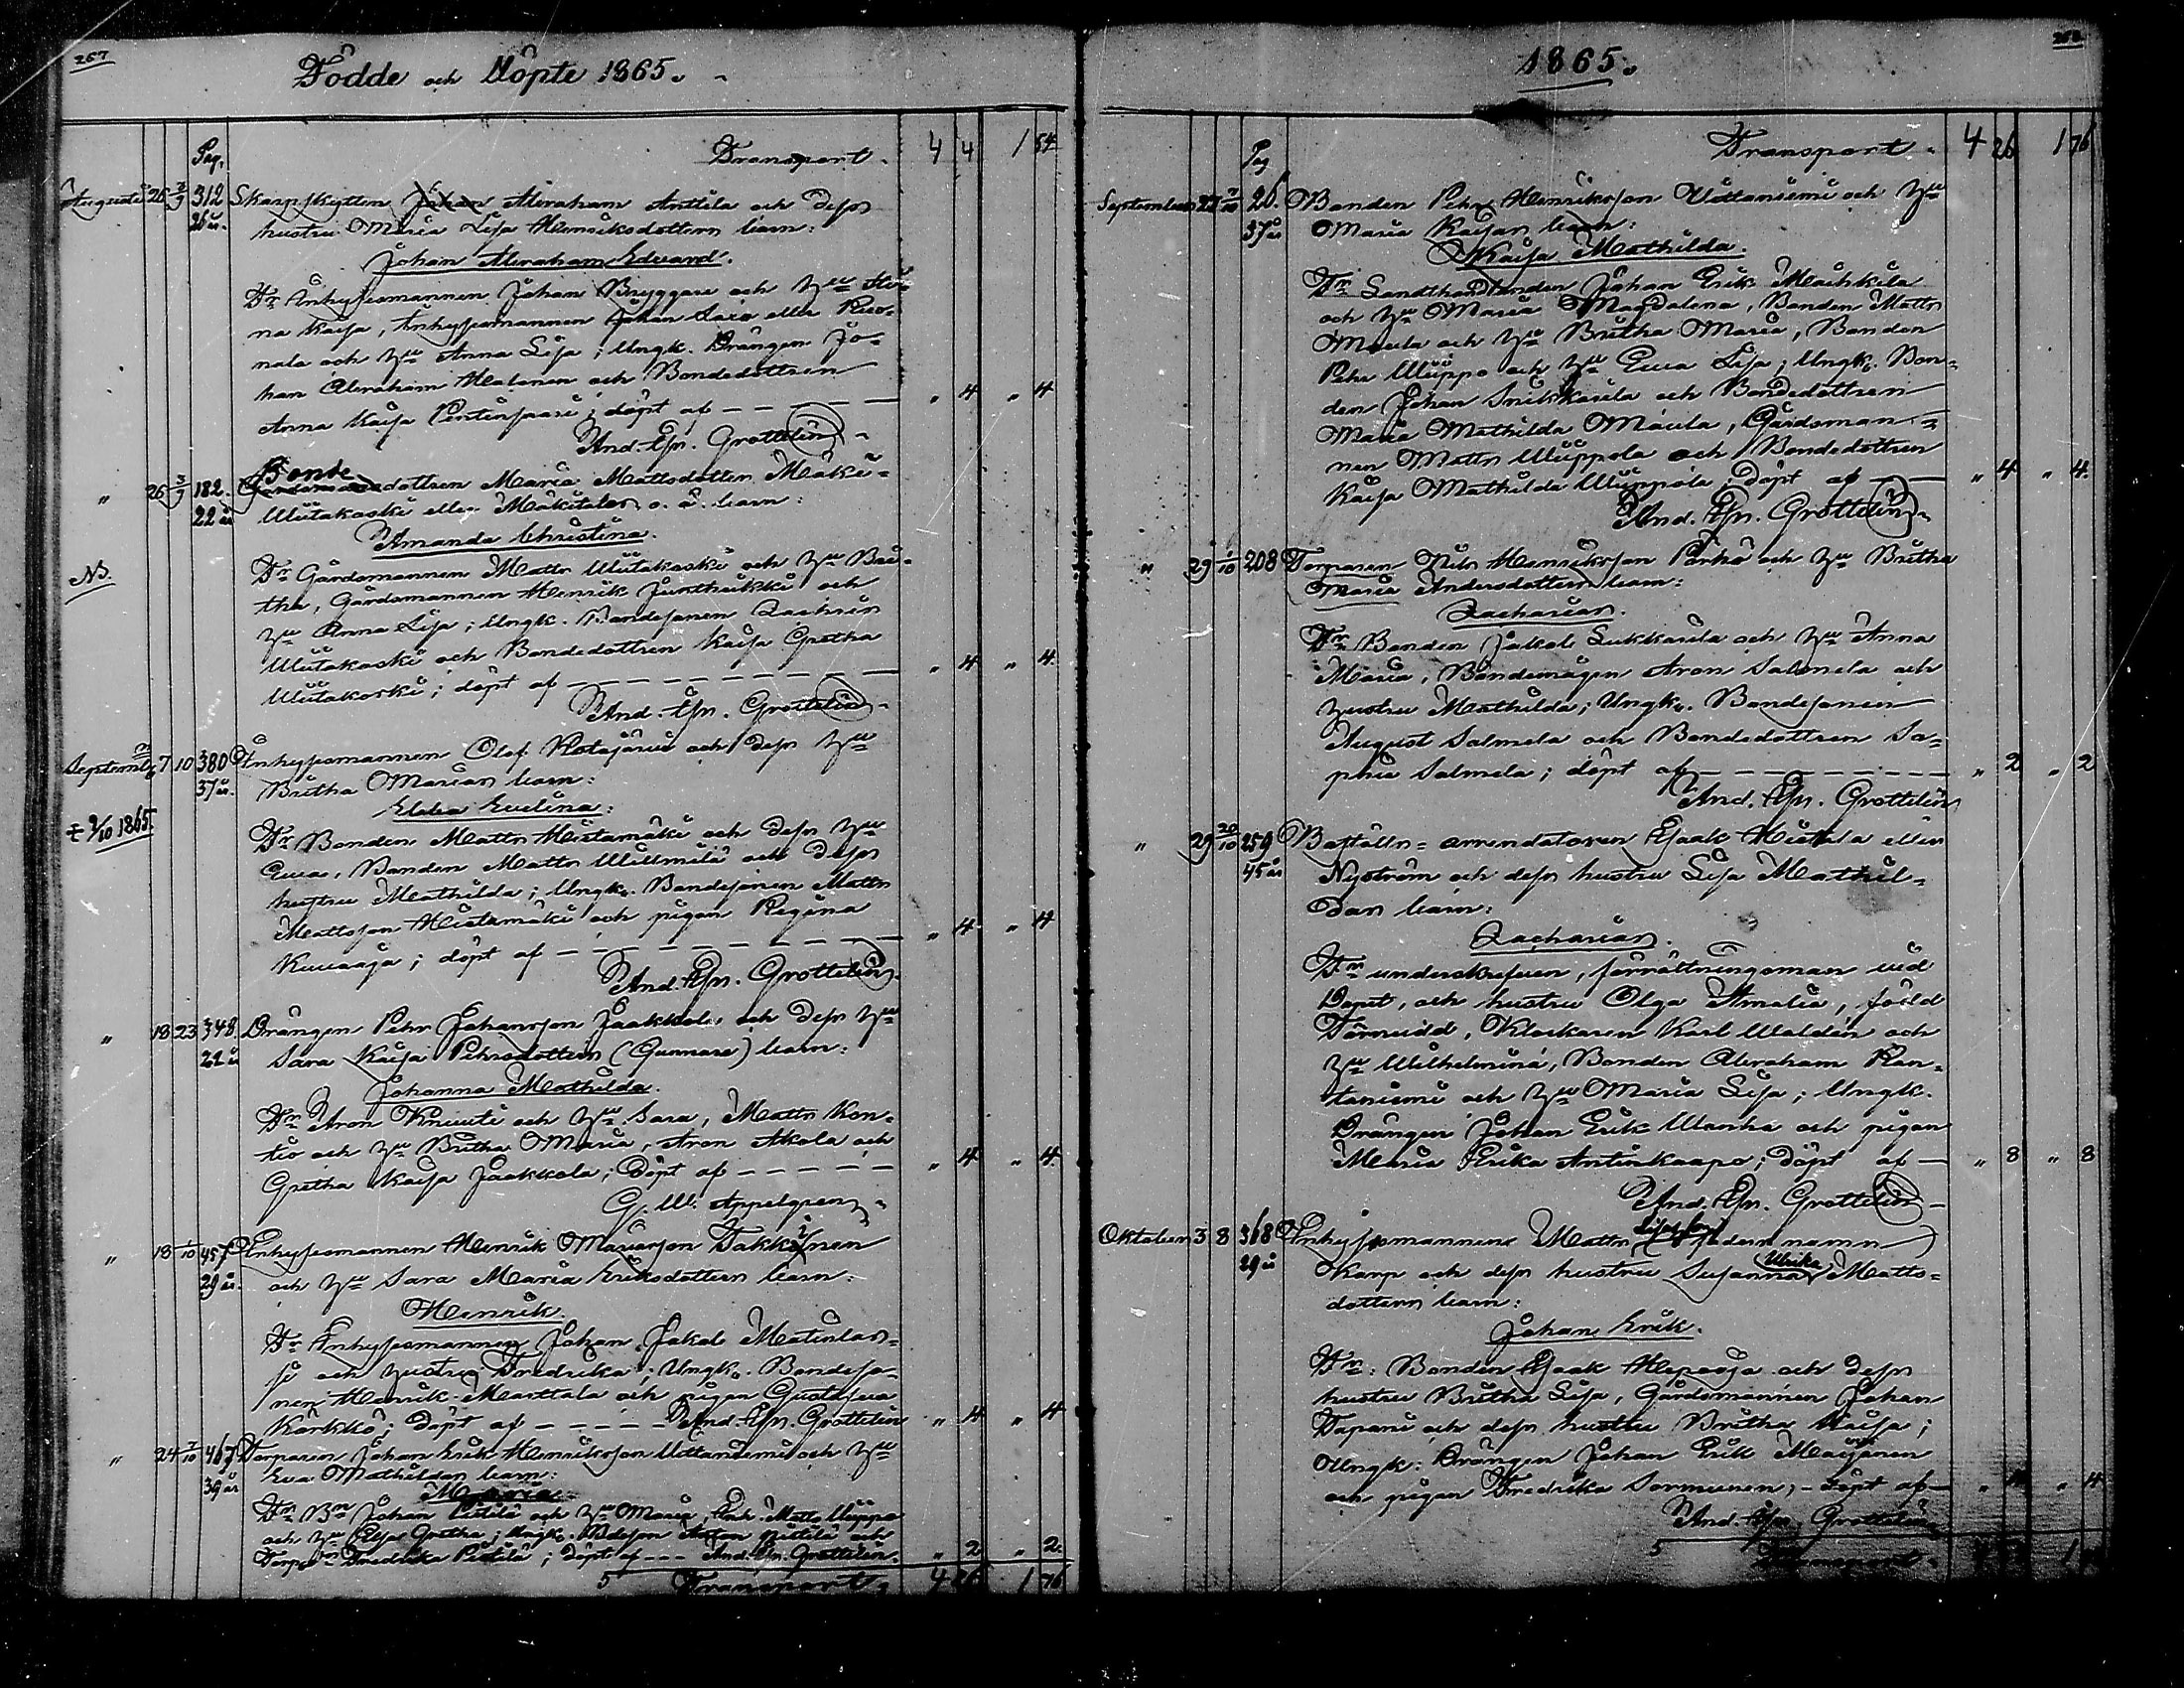 267
Födde och Döpte 1865.
Pag.
Transport. 4 4 1 54
Augusti 26 3/9 312 Skarpskytten Johan Abraham Anttila och dess
26 år. hustru Maria Lisa Henriksdotters barn:
Johan Abraham Edvard.
Fr Inhysesmannen Johan Bryggare och Hu Ste-
na Kaisa, Inhysesmannen Johan eller
nala och Hu Anna Lisa; Ungk. Drängen Jo-
han Abraham Halonen och Bondedottren
Anna Kaisa Pentinsaari; döpt af — — — — — " 4 " 4
And. Esn. Grottelin
" 26 3/9 182. Bonde dottren Maria Mattsdotter Mäki-
22 år Wiitakoski eller Mäkitalos o. ä. barn:
Amanda Christina.
NB. Fr Gårdsmannen Matts Wiitakoski och Hu Bri-
tha, Gårdsmannen Henrik Junttikkki och
Hu Anna Lisa; Ungk. Bondesonen Zachris
Wiitakoski och Bondedottren Kaisa Gretha
Wiitakoski; döpt af — — — — — — — " 4 " 4.
And. Esn. Grottelin
September 7 10 380 Inhysesmannen Olof Kotajärvi och dess Hu
37 år. Britha Marias barn:
Ebba Evelina:
‡ 9/10 1865. Fr Bonden Matts Hietamäki och dess Hu
Eva, Bonden Matts Willmilä och dess
hustru Mathilda; Ungk. Bondesonen Matts
Mattsson Hietamäki och pigan Regina
Kuusaja; döpt af — — — — — — — " 4 " 4
And. Esn. Grottelin.
" 18 23 348. Drängen Pehr Johansson Jaakkola och dess Hu
22 år Sara Kaisa Pehrsdotters (Gummare) barn:
Johanna Mathilda.
Fr Aron Kniuti och Hu Sara, Matts Kon-
tio och Hu Britha Maria, Aron Akola och
Gretha Kaisa Jaakkola; Döpt af — — — — — " 4 " 4.
G. W. Appelgren
" 18 1/10 457 Inhysesmannen Henrik Mariasson Takkinen
29 år. och Hu Sara Maria Eriksdotters barn:
Henrik.
Fr Inhysesmannen Johan Jakob Matinlas-
si och hustru Fredrika; Ungk. Bondeso-
nen Henrik Marttala och pigan Gustafva
Kärkkö; Döpt af — — — — And. Esn. Grottelin " 4 " 4
" 24 1/10 467 Torparen Johan Erik Henriksson Wattaniemi och Hu
39 år Eva Mathildas barn:
Maria
Fr Bn Johan Pietilä och Hu Maria, Matts Uuppa
och Hu Elsa Gretha; Ungk. Anton Pietilä och
Fredrika Pietilä; döpt af — — — And. Esn. Grottelin. " 2 " 2.
5 Transport. 4 26 1 76
268
1865.
Pag
Transport. 4 26 1 76
September 27 26. Bonden Pehr Henriksson Wattaniemi och Hu
37 år Maria Kaisas barn:
Kaisa Mathilda.
Fr Landthandlanden Johan Erik Maihkila
och Hu Maria Magdalena, Bonden Matts
Maula och Hu Britha Maria, Bonden
Pehr Wuppo och Hu Eva Lisa; Ungk. Bon-
den Johan Snikkarila och Bondedottren
Maria Mathilda Maula, Gårdsman-
nen Matts Wuppola och Bondedottren
Kaisa Mathilda Wuppola; Döpt af — — " 4 " 4.
And. Esn. Grottelin
" 29 1/10 208 Torparen Nils Henriksson Pörhö och Hu Britha
Maria Andersdotters barn:
Zacharias.
Fr Bonden Jakob Sukkarila och Hu Anna
Maria, Bondemågen Aron Salmela och
hustru Mathilda; Ungk. Bondesonen
August Salmela och Bondedottren So-
phia Salmela; döpt af — — — — — — " 2 " 2
And. Esn. Grottelin
" 29 20/10 259 Boställs-arrendatoren Esaak Mietala eller
45 år Nyström och dess hustru Lisa Mathil-
das barn:
Zacharias.
Fr underskrefven, förrättningsman vid
Dopet, och hustru Olga Amalia, född
Törnudd, Klockaren Karl Waldén och
Hu Wilhelmina, Bonden Abraham Ran-
taniemi och Hu Maria Lisa; Ungk.
Drängen Johan Erik Wanha och pigan
Maria Erika Antinkaapo; Döpt af — " 8 " 8
And. Esn. Grottelin
Oktober 3 8 368 Inhysesmannens Matts namn
29 år Karp och dess hustru Susanna Ulrika Matts-
dotters barn:
Johan Erik.
Fr: Bonden Esaak Hepoaja och dess
hustru Britha Lisa, Gårdsmannen Johan
Tapani och dess hustru Britha Kaisa;
Ungk: Drängen Johan Erik
och pigan Fredrika Sormunen; — Döpt af — " 4 " 4
And. Esn. Grottelin
5 Transport.